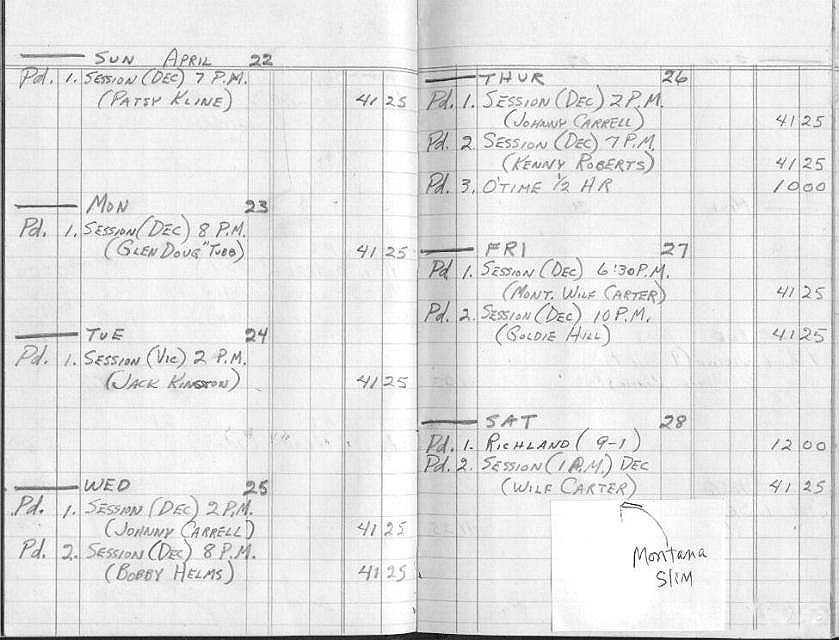 SUN APRIL 22
Pd. 1. SESSION (DEC) 7 P.M.
(PATSY KLINE) 41 25
MON 23
Pd. 1. SESSION (DEC) 8 P.M.
(GLEN DOUG "TUBB) 41 25
TUE 24
Pd. 1. SESSION (VIC) 2 P.M.
(JACK KINGSTON) 41 25
WED 25
Pd. 1. SESSION (DEC) 2 P.M.
(JOHNNY CARRELL) 41 25
Pd. 2. SESSION (DEC) 8 P.M.
(BOBBY HELMS) 41 25
THUR 26
Pd. 1. SESSION (DEC) 2 P.M.
(JOHNNY CARRELL) 41 25
Pd. 2. SESSION (DEC) 7 P.M.
(KENNY ROBERTS) 41 25
Pd. 3. O'TIME 1/2 HR 10 00
FRI 27
Pd 1. SESSION (DEC) 6:30 P.M.
(MONT. WILF CARTER) 41 25
Pd. 2. SESSION (DEC) 10 P.M.
(GOLDIE HILL) 41 25
SAT 28
Pd. 1. RICHLAND (9-1) 12 00
Pd. 2. SESSION (1 A.M.) DEC
(WILF CARTER) 41 25
Montana
Slim